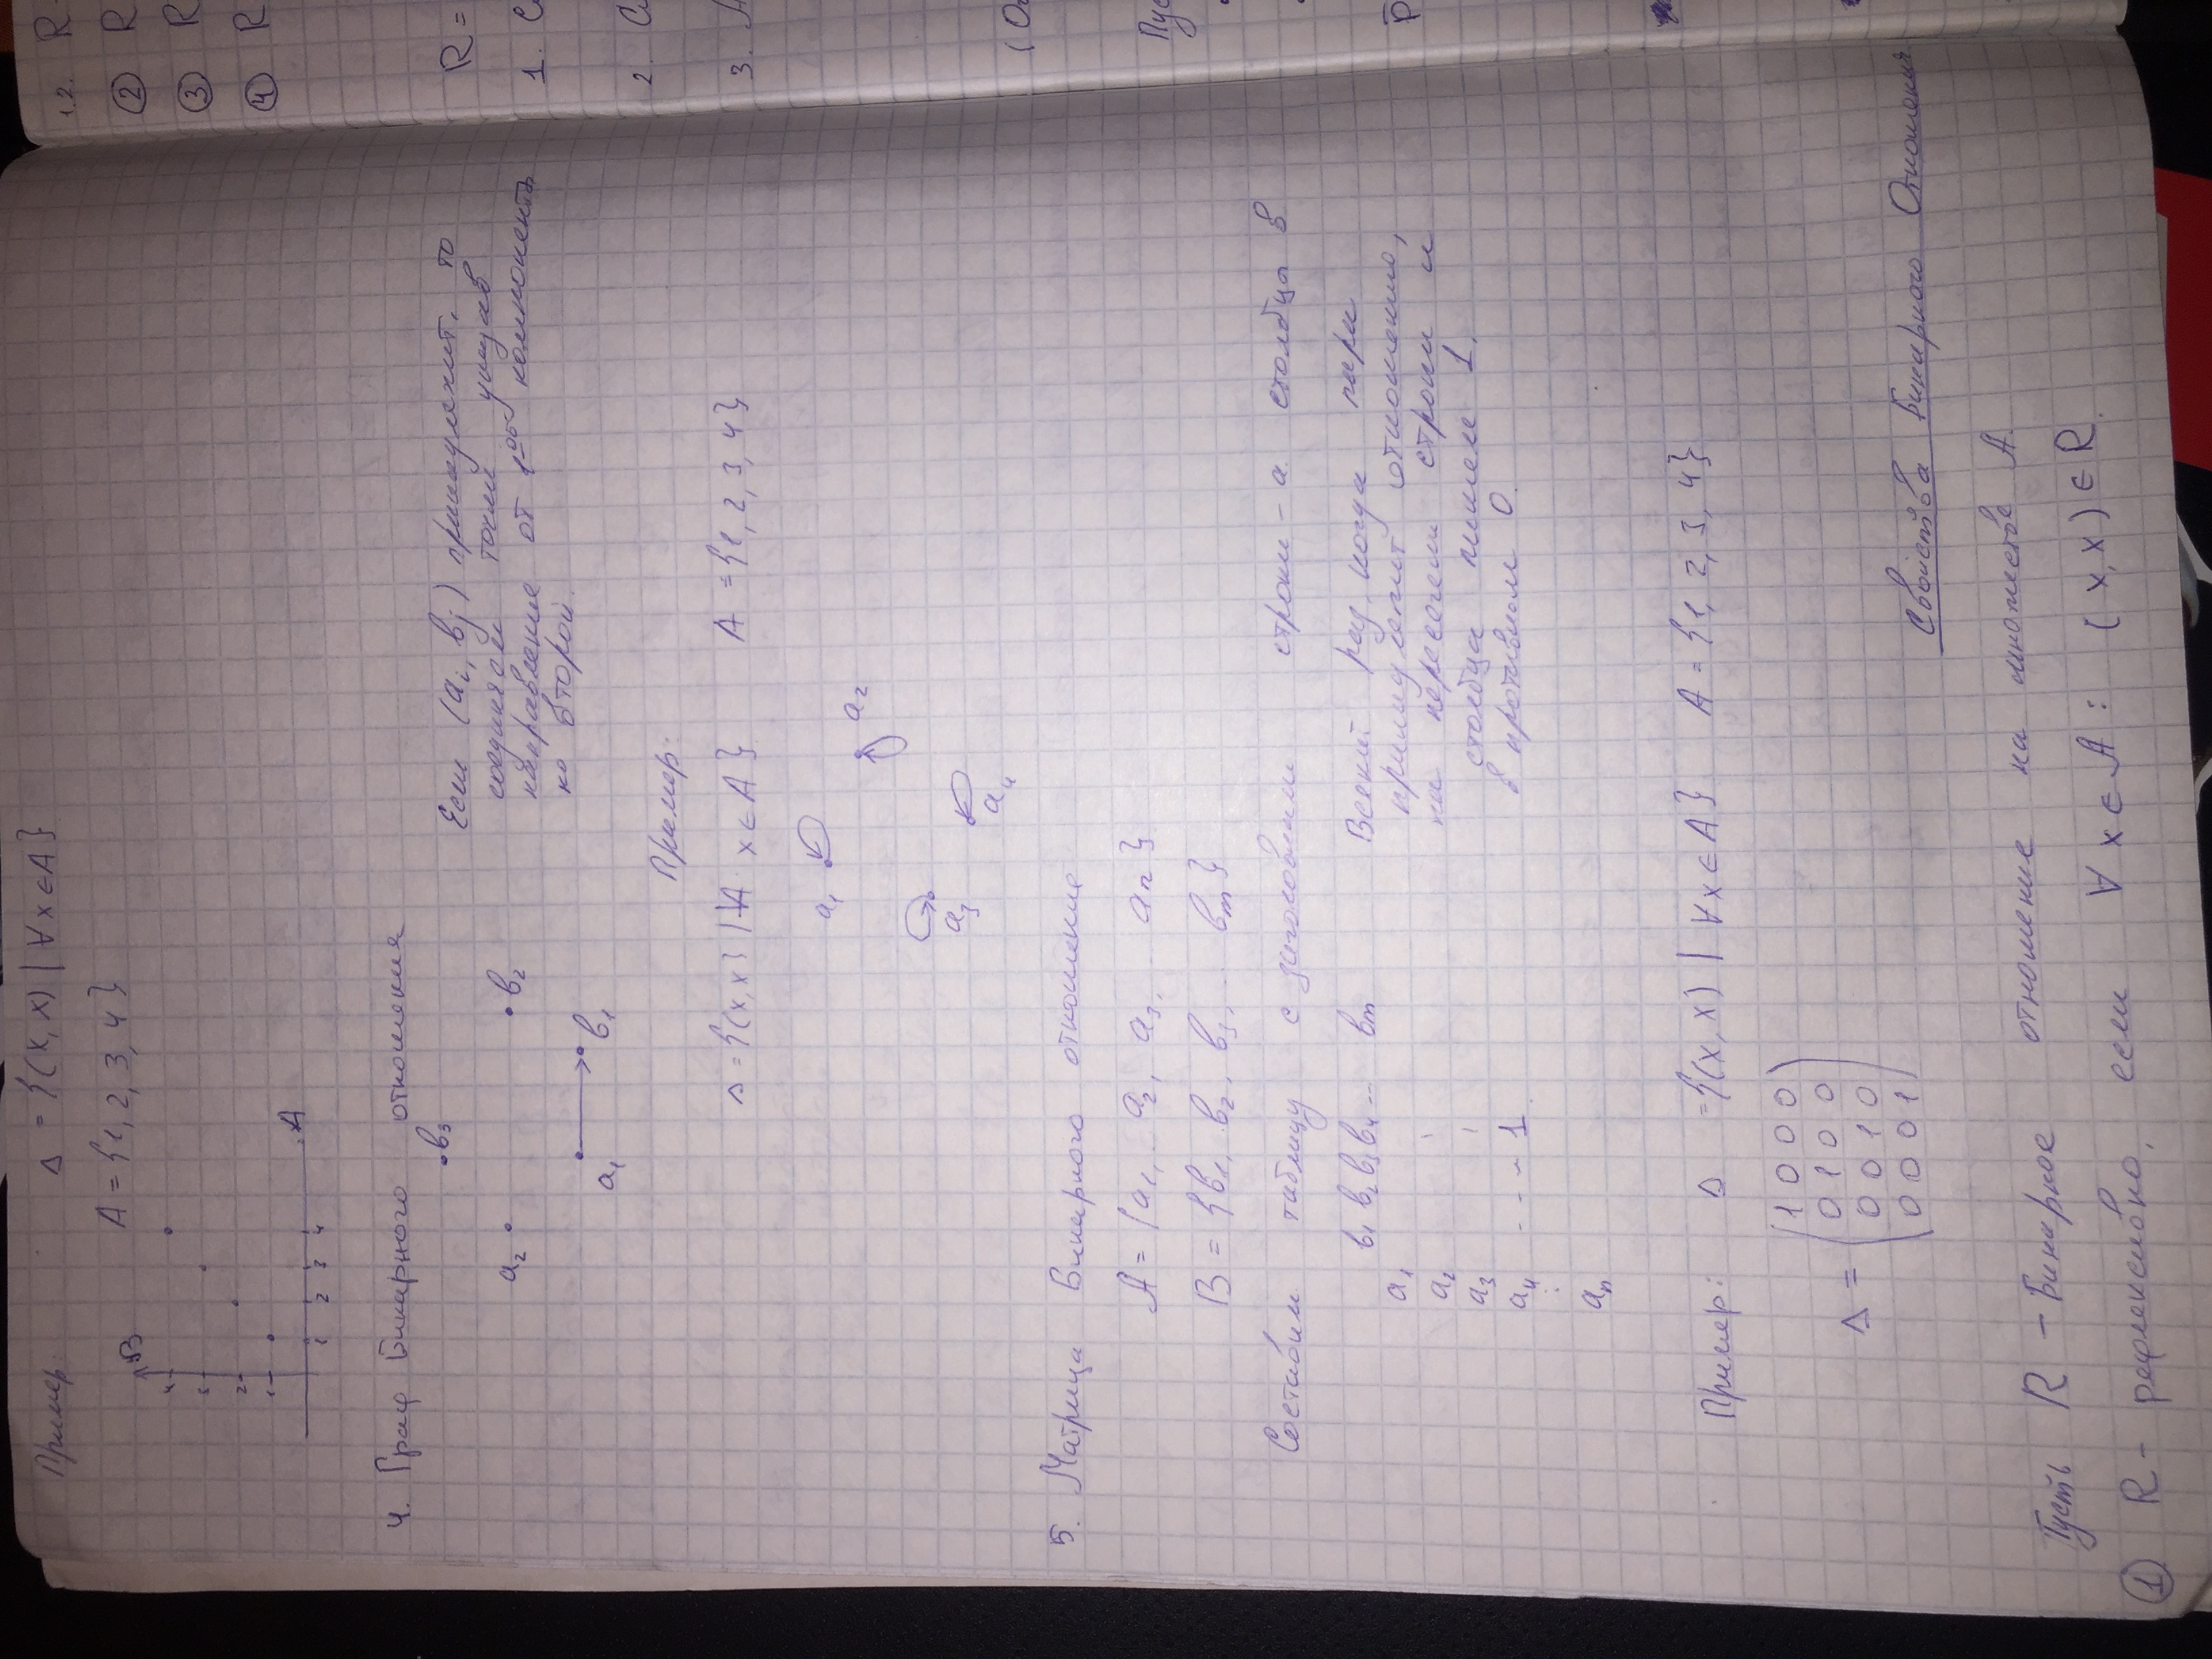 Пример: Δ = {(x, x) | ∀x∈A}
A = {1, 2, 3, 4}
B
4
3
2
1
A
1 2 3 4
4. Граф Бинарного отношения
b3
a2
b2
a1
b1
Если (ai, bj) принадлежит, то
соединяем точки указав
направление от 1ой компоненты
ко второй.
Пример:
Δ = {(x, x} | ∀ x∈A} A = {1, 2, 3, 4}
a1
a2
a3
a4
5. Матрица Бинарного отношение
A = {a1, a2, a3, .. an}
B = {b1, b2, b3, .. bm}
Составим таблицу с заголовками строки - a столбца b
b1 b2 b3 b4 ... bm
a1
a2
a3
a4 - - - 1
⋮
an
Всякий раз, когда пара
принадлежит отношению,
на пересечени строки и
столбца пишем 1.
в противном 0.
Пример: Δ = {(x, x) | ∀x∈A} A = {1, 2, 3, 4}
1 0 0 0
0 1 0 0
Δ =
0 0 1 0
0 0 0 1
Свойства Бинарного Отношения
Пусть R - Бинарное отношение на множестве A.
① R - рефлексивно, если ∀ x∈A : (x, x) ∈ R.
1.2. R
② R
③ R
④ R
R =
1. С
2.
3.
Пус